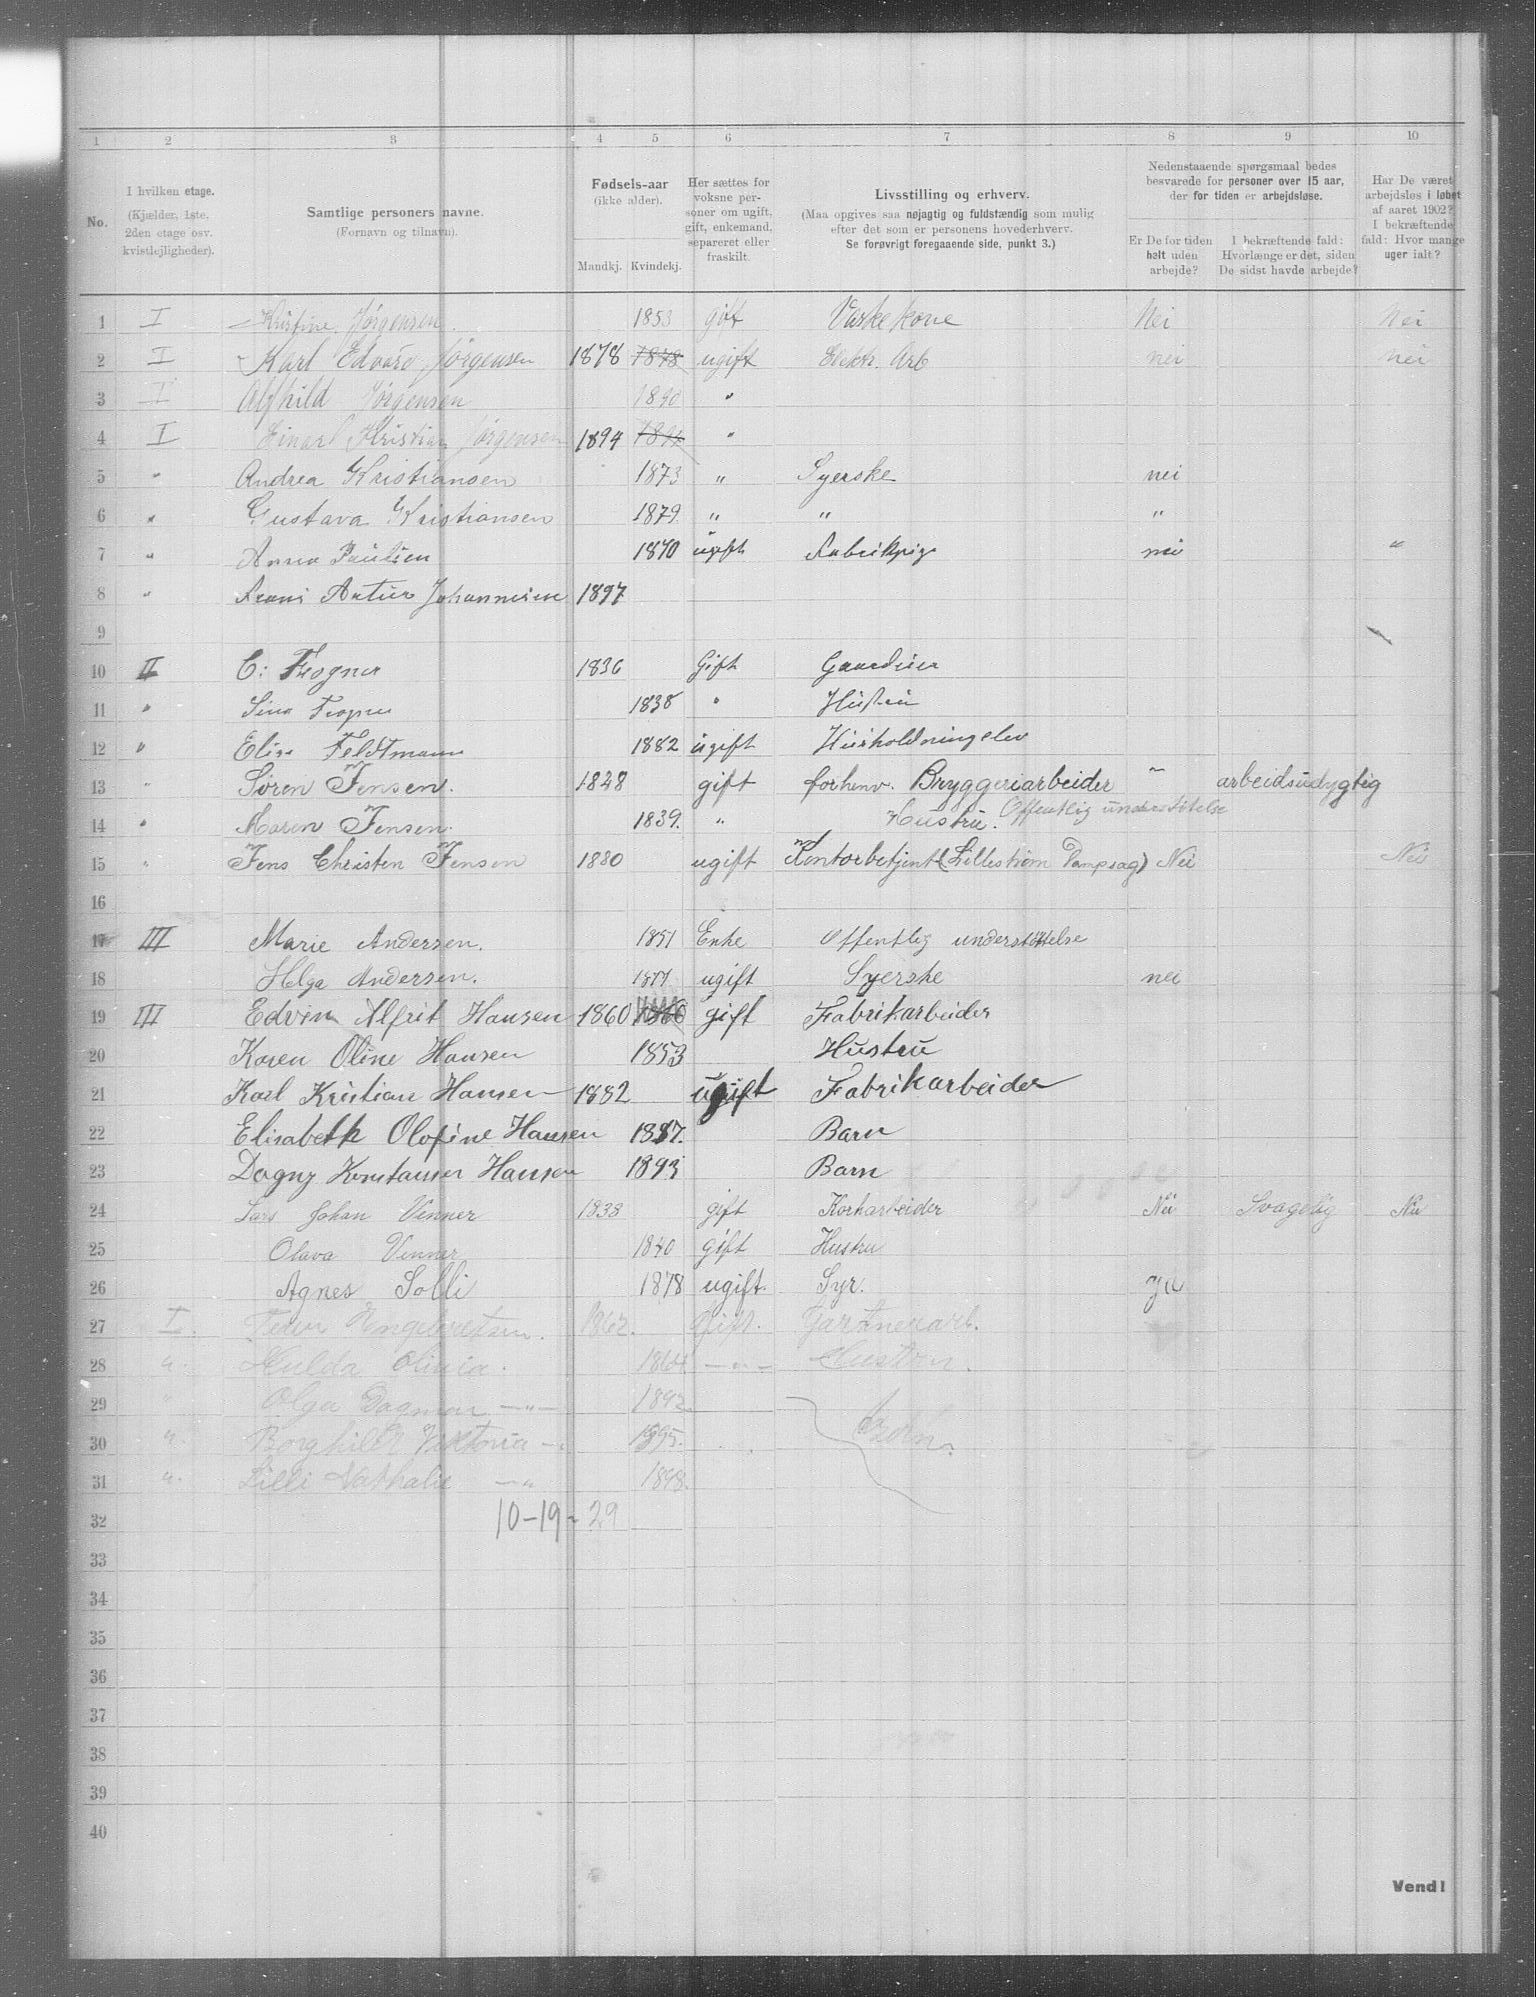 1 2 3 4 5 6 7 8 9 10
No.
I hvilken etage.
(Kjælder, 1ste.
2den etage osv.
kvistlejligheder).
Samtlige personers navne.
(Fornavn og tilnavn).
Fødsels-aar
(ikke alder).
Mandkj. Kvindekj.
Her sættes for
voksne per-
soner om ugift,
gift, enkemand,
separeret eller
fraskilt.
Livsstilling og erhverv.
(Maa opgives saa nøjagtig og fuldstændig som mulig
efter det som er personens hovederhverv.
Se forøvrigt foregaaende side, punkt 3.)
Nedenstaaende spørgsmaal bedes
besvarede for personer over 15 aar,
der for tiden er arbejdsløse.
Er De for tiden
helt uden
arbejde?
I bekræftende fald:
Hvorlænge er det, siden
De sidst havde arbejde?
Har De været
arbejdsløs i løbet
af aaret 1902?
I bekræftende
fald: Hvor mange
uger ialt?
1 I Kristine Jørgensen 1853 gift Vaskekone Nei Nei
2 I Karl Edvard Jørgensen 1878 1878 ugift Elektr. Arb nei nei
3 I Alfhild Jørgensen 1890 "
4 I Einar Kristian Jørgensen 1894 1894 "
5 " Andrea Kristiansen 1873 " Syerske nei
6 " Gustava Kristiansen 1879 " " "
7 " Anna Paulsen 1870 ugift Fabrikpige nei "
8 " Frans Artur Johannesen 1897
9
10 II C: Frogner 1836 Gift Gaardeier
11 " Sina Frogner 1838 " Hustru
12 " Elise Feldtmann 1882 ugift Husholdningelev
13 " Søren Jensen. 1828 gift forhenv. Bryggeriarbeider " arbeidsudygtig
14 " Maren Jensen. 1839. " Hustru. Offentlig understøtelse
15 " Jens Christen Jensen 1880 ugift Kontorbetjent (Lillestrøm Dampsag) Nei Nei
16
17 III Marie Andersen. 1851 Enke Offentlig understøttelse
18 Helga Andersen. 1877 ugift Syerske nei
19 III Edvin Alfrit Hansen 1860 1860 gift Fabrikarbeider
20 Karen Oline Hansen 1853 Hustru
21 Karl Kristian Hansen 1882 ugift Fabrikarbeider
22 Elisabeth Olofine Hansen 1887. Barn
23 Dagny Konstanse Hansen 1893 Barn
24 Lars Johan Venner 1838 gift Korkarbeider Nei Svagelig Nei
25 Olava Venner 1840 gift Hustru
26 Agnes Solli 1878 ugift. Syr. ja
27 I. Peder Engebretsen. 1862. Gift. Gartnerarb.
28 " Hulda Olivia. 1864 —"— Hustru.
29 " Olga Dagmar —"— 1892.
30 " Borghild Viktoria —" 1895. Børn.
31 " Lilli Nathalie —" 1898.
32 10-19-29
33
34
35
36
37
38
39
40
Vend!